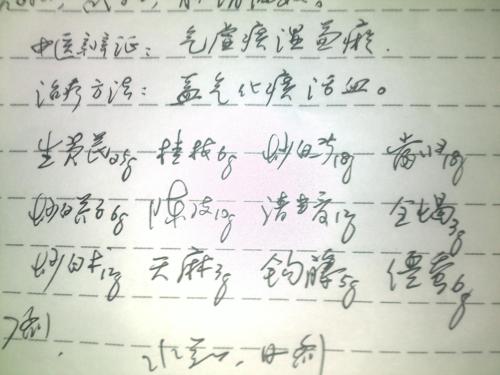 中医辨证：气虚痰湿血瘀.
治疗方法：益气化痰活血。
生黄芪25g 桂枝6g 炒白芍18g 当归18g
炒白芥子6g 陈皮12g 清半夏12g 全蝎3g
炒白术12g 天麻3g 钩藤5g 僵蚕6g
7剂.
水煎, 日一剂